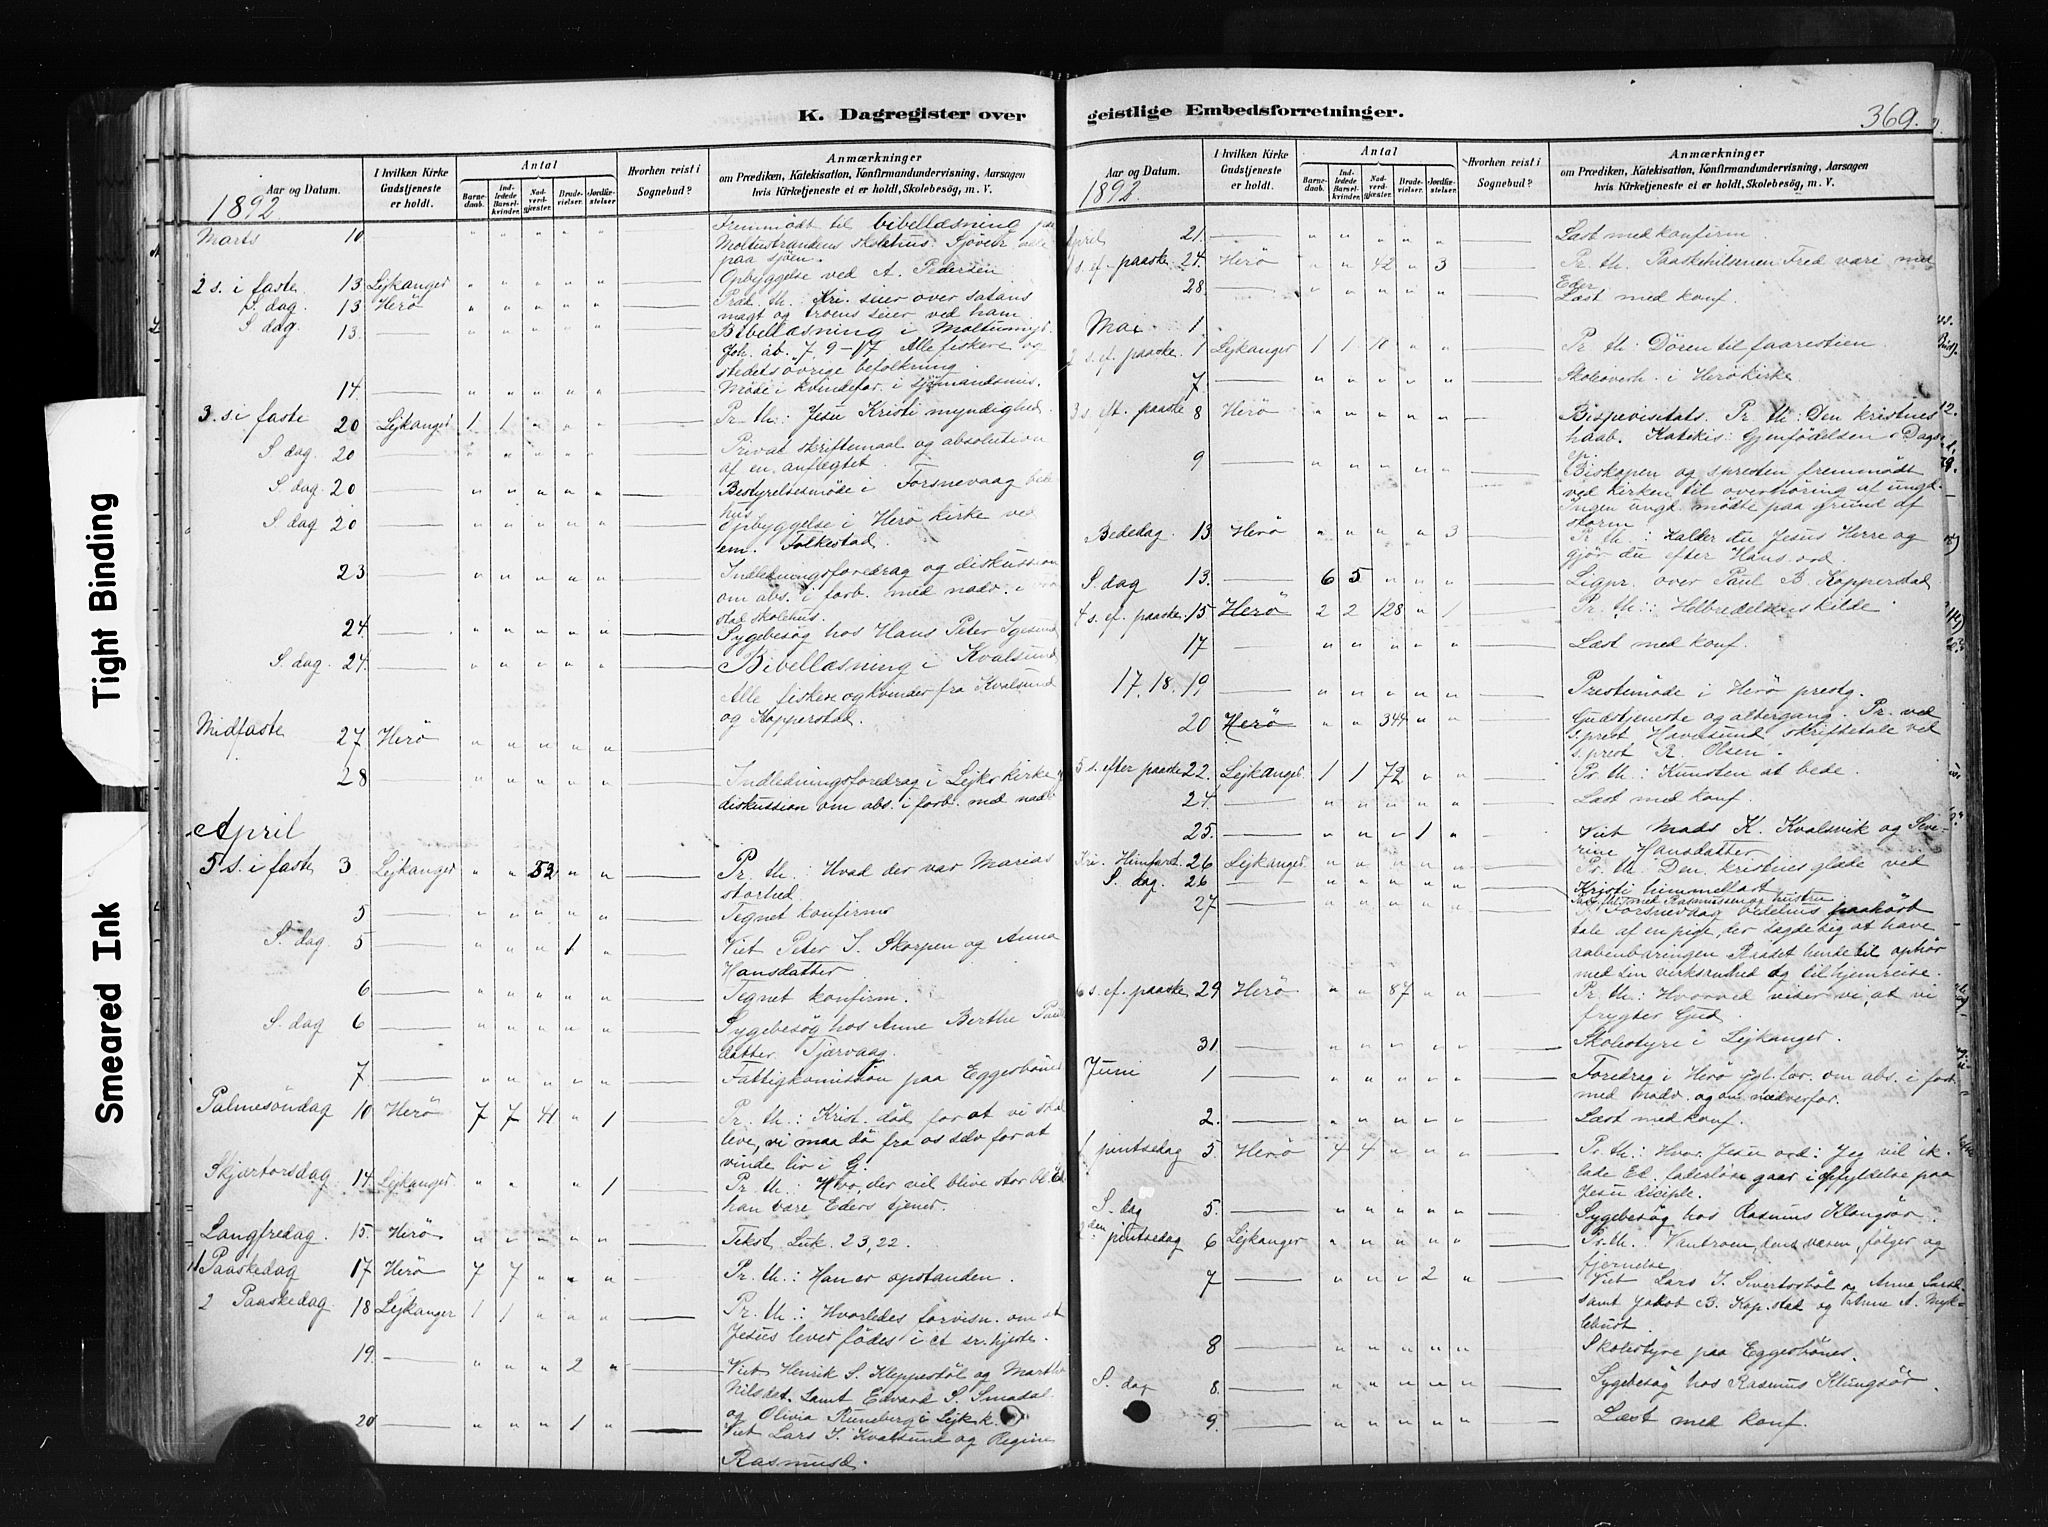 K. Dagregister over
Aar og Datum.
I hvilken Kirke Gudstjeneste er holdt.
Antal
Barne-daab.
Ind-ledede Barsel-kvinder.
Nad-verd-gjæster.
Brude-vielser.
Jordfæ-stelser
Hvorhen reist i Sognebud?
Anmærkninger
om Prædiken, Katekisation, Konfirmandundervisning, Aarsagen
hvis Kirketjeneste ei er holdt, Skolebesög, m. V.
1892
Marts 10 Fremmödt til bibellæsning paa
Moltustrandens skolehus. Sjöveir, alle
paa sjöen.
2 s. i faste 13 Lejkanger Opbyggelse ved A. Pedersen
S. dag 13 Herö Præk. th: Kri. seier over satans
magt og troens seier ved ham
S dag 13 Bibellæsning i Moltumyr.
Joh. åb. 7, 9-17 Alle fiskere og
stedets övrige befolkning.
14 Möde i kvindefor. i sjömandsmis.
3. s. i faste 20 Lejkanger 1 1 Pr. th.: Jesu Kristi myndighed.
S dag. 20 Privat skriftemaal og absolution
af en anflegtet.
S. dag. 20 Bestyrelsesmöde i Forsnevaag bede
hus
S. dag 20 Opbyggelse i Herö kirke ved
em. Folkestad.
23 Indledningsforedrag og diskussion
om abs. i forb. med nadv. i
skolehus.
24 Sygebesög hos Hans Peter Igesund
S. dag 24. Bibellæsning i Kvalsund
Alle fiskere og kvinder fra Kvalsund
og Kopperstad.
Midfaste 27 Herö
28 Indledningsforedrag i Lejk. kirke og
diskussion om abs. i forb. med nadv
April
5 s. i faste 3 Lejkanger 53 Pr. th.: Hvad der var Marias
storhed
5 Tegnet konfirm
S. dag 5 1 Viet Peter I. Skorpen og Anna
Hansdatter
6 Tegnet konfirm.
S. dag 6 Sygebesög hos Anne Berthe Pauls
datter Tjærvaag.
7 Fattigkomission paa Eggesbönes
Palmesöndag 10 Herö 7 7 41 1 Pr. th.: Krist. död for at vi skal
leve, vi maa dö fra os selv for at
vinde liv i G.
Skjærtorsdag 14 Lejkanger 1 Pr. th.: Hvo, der vil blive stor bl. Ed.
han være Eders tjener.
Langfredag. 15. Herö Tekst Luk. 23,22.
1 Paaskedag 17 Herö 7 7 Pr. th.: Han er opstanden.
2 Paaskedag. 18 Lejkanger 1 1 Pr. th.: Hvorledes forvisn. om at
Jesus lever födes i et sr. hjerte.
19. 2 Viet Henrik S. Kleppestöl og Marthe
Nilsdat. samt Edvard S. Smådal
og Olivia Runeberg i Lejk. k.
20 1 Viet Lars I. Kvalsund og Regine
Rasmusd.
geistlige Embedsforretninger.
369.
Aar og Datum.
I hvilken Kirke Gudstjeneste er holdt.
Antal
Barne-daab.
Ind-ledede Barsel-kvinder.
Nad-verd-gjæster.
Brude-vielser.
Jordfæ-stelser.
Hvorhen reist i Sognebud?
Anmærkninger
om Prædiken, Katekisation, Konfirmandundervisning, Aarsagen
hvis Kirketjeneste ei er holdt, Skolebesög, m. V.
1892.
April 21. Læst med konfirm
1 s. ef. paaske 24. Herö 42 3 Pr. th. Paaskehilsenen Fred være med
Eder
28 Læst med konf.
Mai 1.
2 s. ef. paaske. 1 Lejkanger 1 1 Pr. th: Dören til faarestien.
7 Skoleoverh. i Herö kirke.
3 s. eft. paaske 8 Herö Bispevisitats. Pr. th: Den kristnes
haab. Katekis: Gjenfödelsen.
9 Biskopen og spresten fremmödt
ved kirken til overhöring af ungd.
Ingen ungd. mödte paa grund af
storm
Bededag 13 Herö 3 Pr. th.: Kalder du Jesus Herre og
gjör du efter Hans ord.
S. dag 13. 6 5 Ligpr. over Paul B. Kopperstad
4 s. ef. paaske 15 Herö 2 2 128 1 Pr. th.: Helbredelsens kilde.
17 Læst med konf.
17. 18. 19 Prestemöde i Herö prestg.
20 Herö 344 Gudstjeneste og altergang. Pr. ved
s. prest Havesund skriftetale ved
s. prest R. Olsen.
5 s. efter paaske 22. Lejkanger 1 1 72 Pr. th.: Kunsten at bede.
24. Læst med konf.
25. 1 Viet Mads K. Kvalsvik og Seve-
rine Hansdatter
Kri. Himfart. 26 Lejkanger Pr. th. Den kristnes glæde ved
Kristi himmelfart
S. dag. 26
27 I Forsnevaag bedehus paahört
tale af en pige, der sagde sig at have
aabenbaringen Raadet hende til ophör
med sin virksomhed og til hjemreise.
6 s. ef. paaske 29 Herö 87 Pr. th.: Hvorved viser vi, at vi
frygter Gud.
31. Skolestyre i Lejkanger.
Juni 1 Foredrag i Herö om abs. i forb
med nadv. og om nadverfor.
2. Læst med konf.
1 pintsedag 5. Herö 4 4 Pr. th.: Hvor. Jesu ord: Jeg vil ik.
lade Ed. faderlöse gaar i opfyldelse paa
Jesu disciple.
S. dag 5. Sygebesög hos Rasmus Klungsör.
2den pintsedag 6 Lejkanger Pr. th.: Vantroen dens væsen, fölger og
fjernelse
7 2 Viet Lars I. Sivertsböl og Anne Larsd.
samt Jakob B. Kop.stad og Anne A. Myk-
lebust.
8 Skolestyre paa Eggesbönes.
S. dag 8. Sygebesög hos Rasmus Klungsör.
9. Læst med konf.
Tight Binding
Smeared Ink